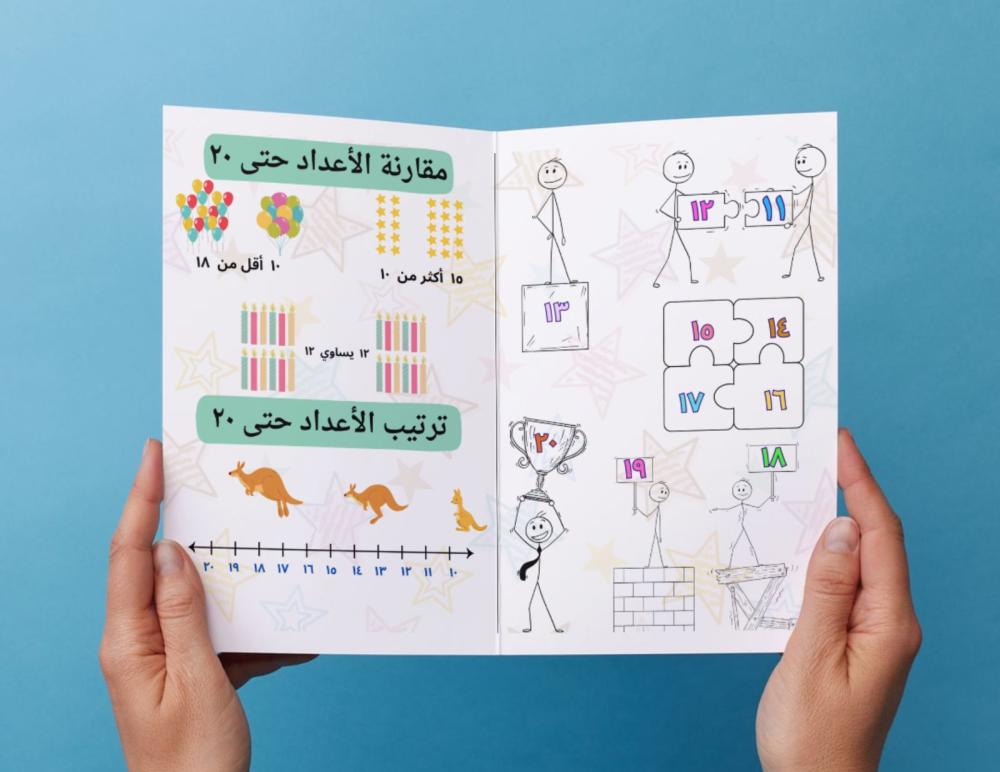 ١١
١٢
١٣
١٤
١٥
١٦
١٧
١٨
١٩
٢٠
مقارنة الأعداد حتى ٢٠
١٥ أكثر من ١٠
١٠ أقل من ١٨
١٢ يساوي ١٢
ترتيب الأعداد حتى ٢٠
١٠ ١١ ١٢ ١٣ ١٤ ١٥ ١٦ ١٧ ١٨ ١٩ ٢٠